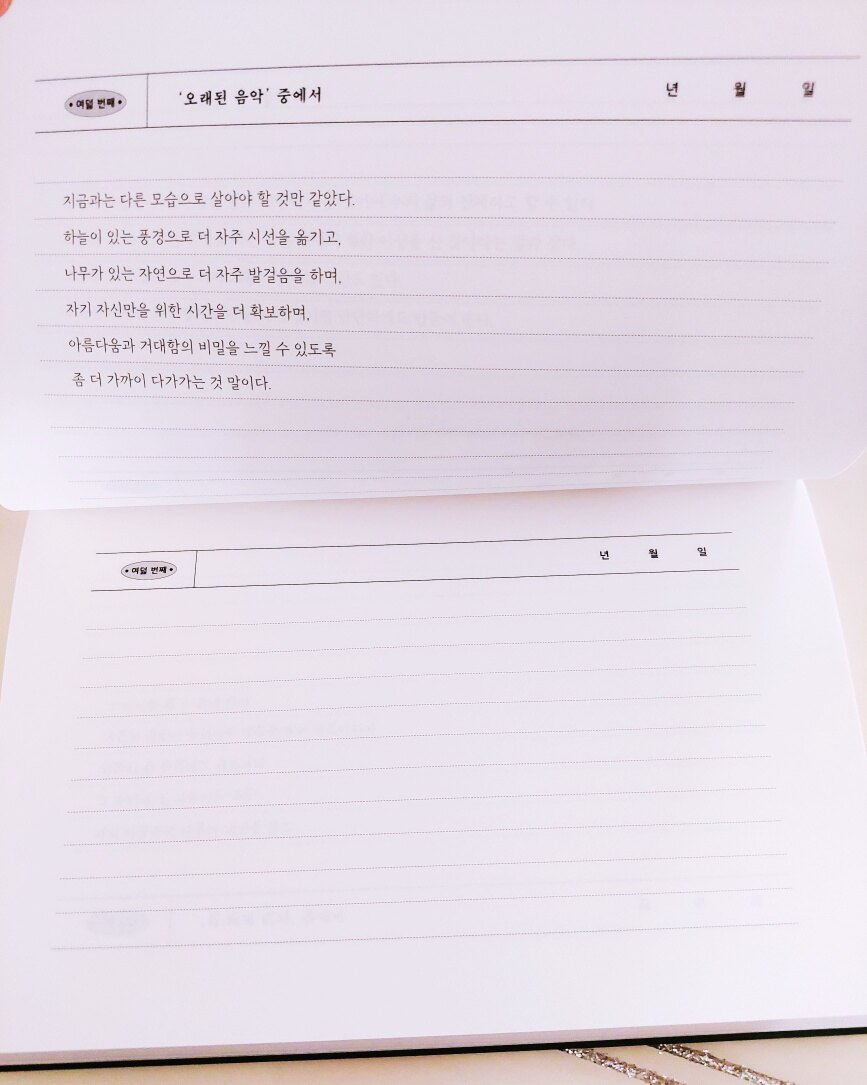 • 여덟 번째 • '오래된 음악' 중에서 년 월 일
지금과는 다른 모습으로 살아야 할 것만 같았다.
하늘이 있는 풍경으로 더 자주 시선을 옮기고,
나무가 있는 자연으로 더 자주 발걸음을 하며,
자기 자신만을 위한 시간을 더 확보하며,
아름다움과 거대함의 비밀을 느낄 수 있도록
좀 더 가까이 다가가는 것 말이다.
• 여덟 번째 • 년 월 일